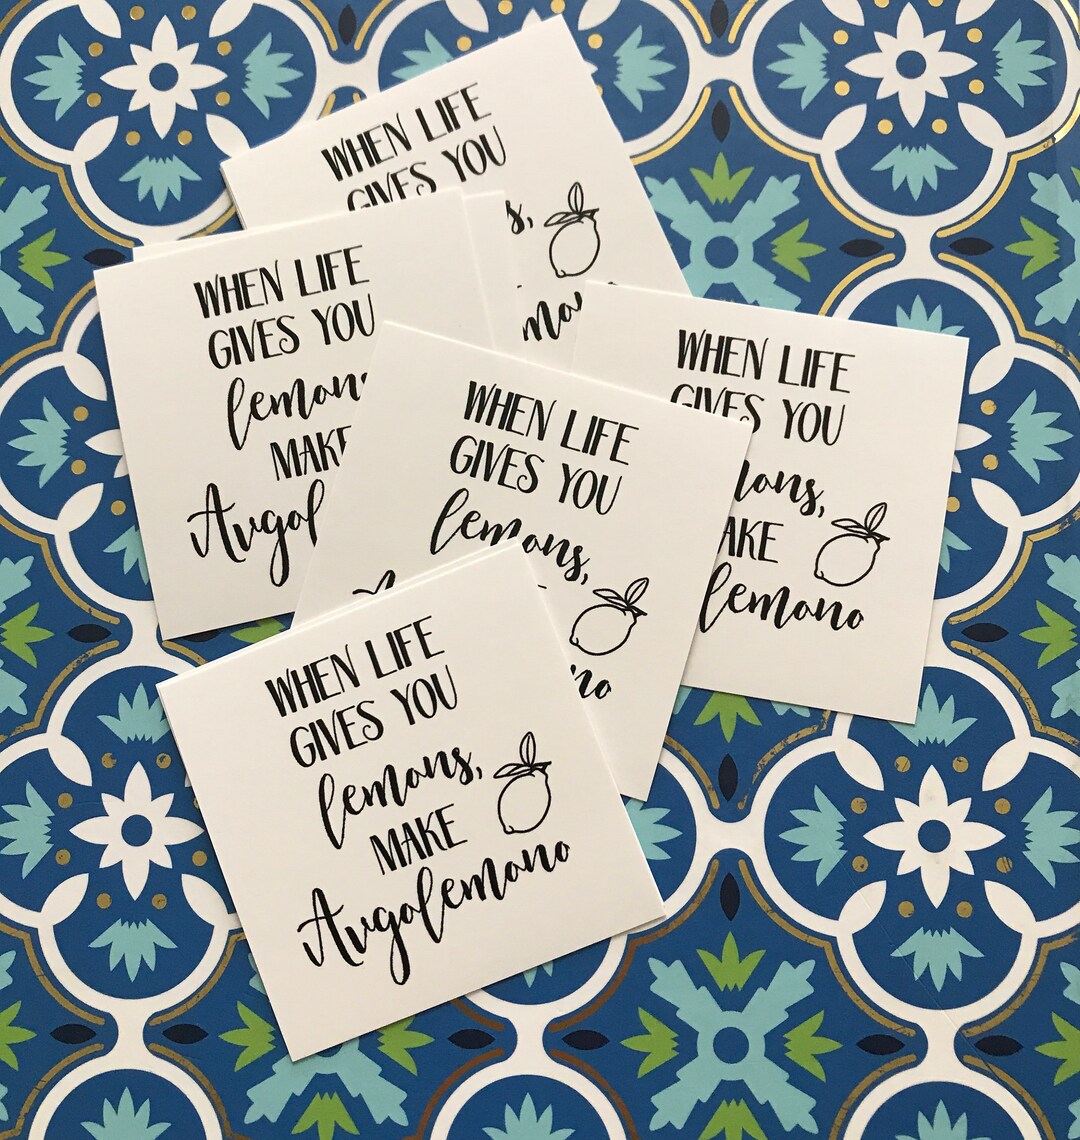 WHEN LIFE
GIVES YOU
WHEN LIFE
GIVES YOU
MAKE
WHEN LIFE
GIVES YOU
MAKE
WHEN LIFE
GIVES YOU
lemons,
WHEN LIFE
GIVES YOU
lemons,
MAKE
Avgolemono